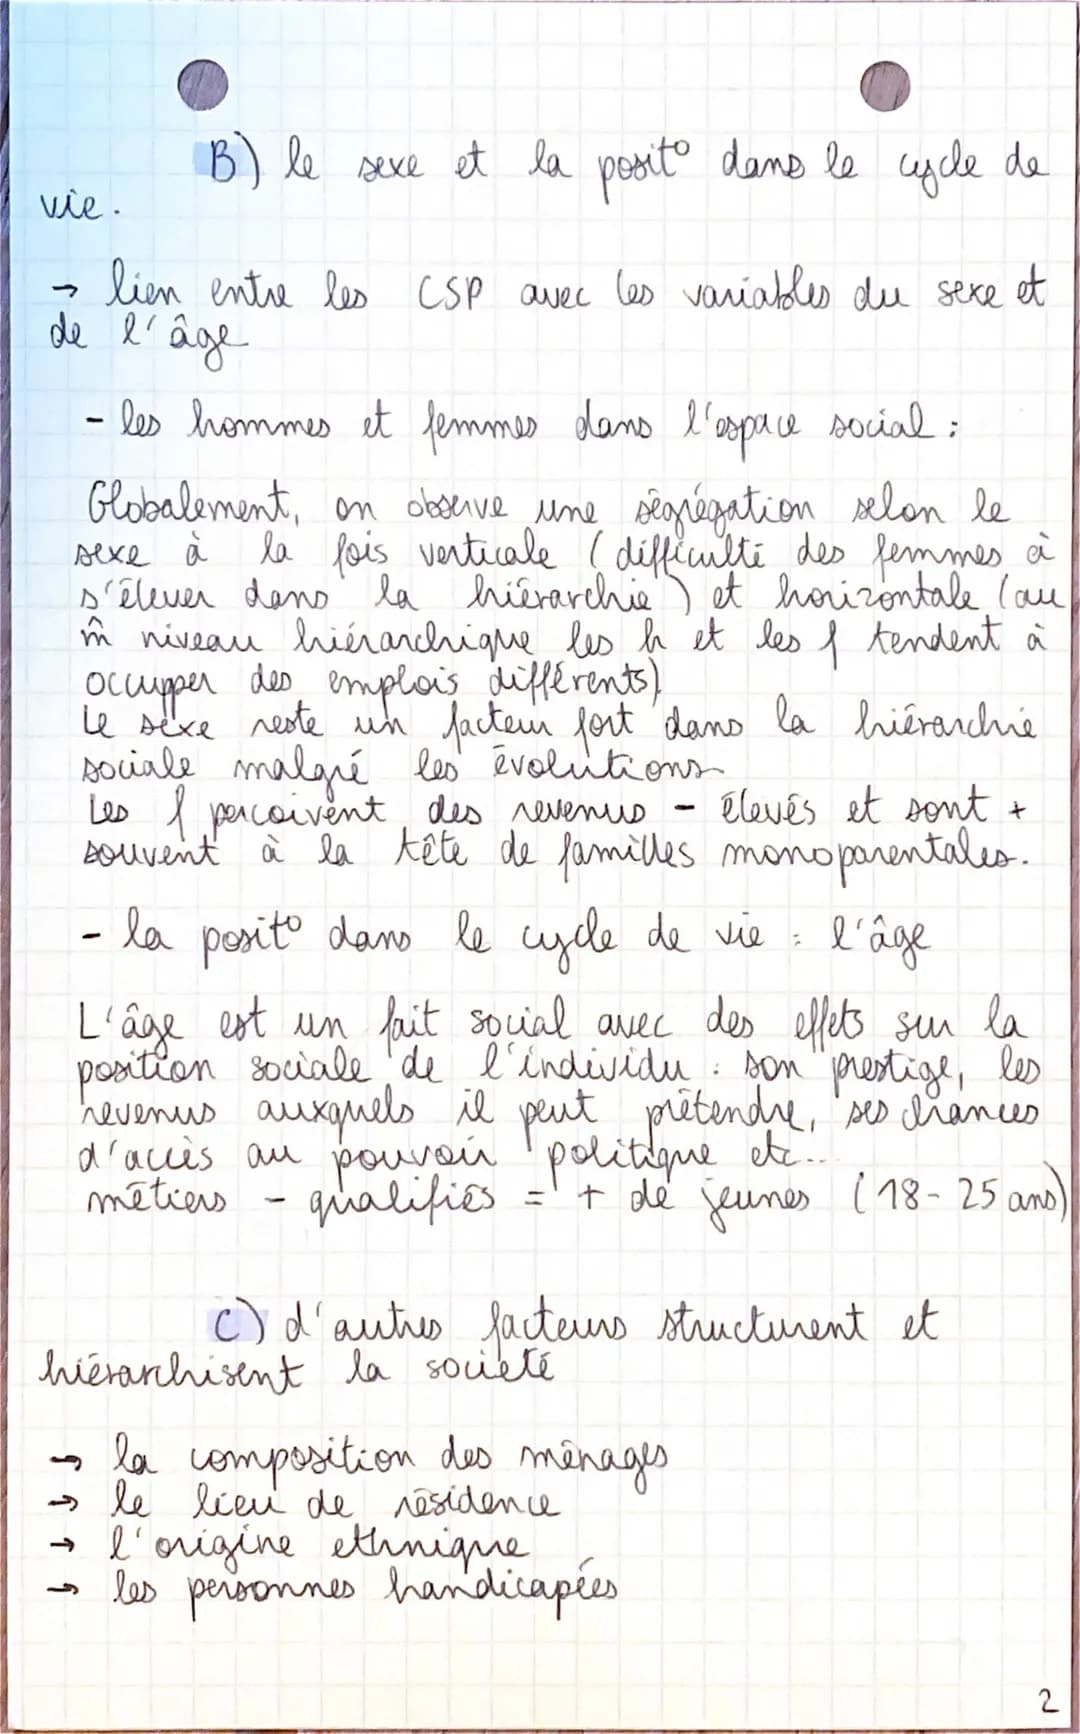 B) le sexe et la posit° dans le cycle de
vie.
→ lien entre les CSP avec les variables du sexe et
de l'âge
- les hommes et femmes dans l'espace social :
Globalement, on observe une ségrégation selon le
sexe à la fois verticale (difficulté des femmes à
s'élever dans la hiérarchie) et horizontale (au
m̂ niveau hiérarchique les h et les f tendent à
occupper des emplois différents)
Le sexe reste un facteur fort dans la hiérarchie
sociale malgré les évolutions
Les f perçoivent des revenus - élevés et sont +
souvent à la tête de familles monoparentales.
- la posit° dans le cycle de vie : l'âge
L'âge est un fait social avec des effets sur la
position sociale de l'individu : son prestige, les
revenus auxquels il peut prétendre, ses chances
d'accès au pouvoir politique etc...
métiers - qualifiés = + de jeunes (18-25 ans)
C) d'autres facteurs structurent et
hiérarchisent la société
→ la composition des ménages
→ le lieu de résidence
→ l'origine ethnique
→ les personnes handicapées
2